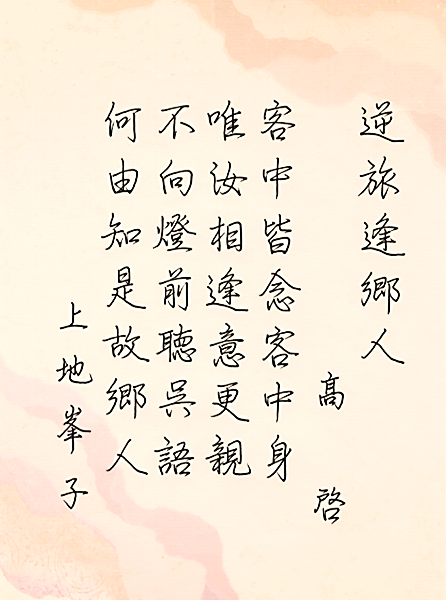 逆旅逢郷人
高啓
客中皆念客中身
唯汝相逢意更親
不向燈前聴呉語
何由知是故郷人
上地峯子